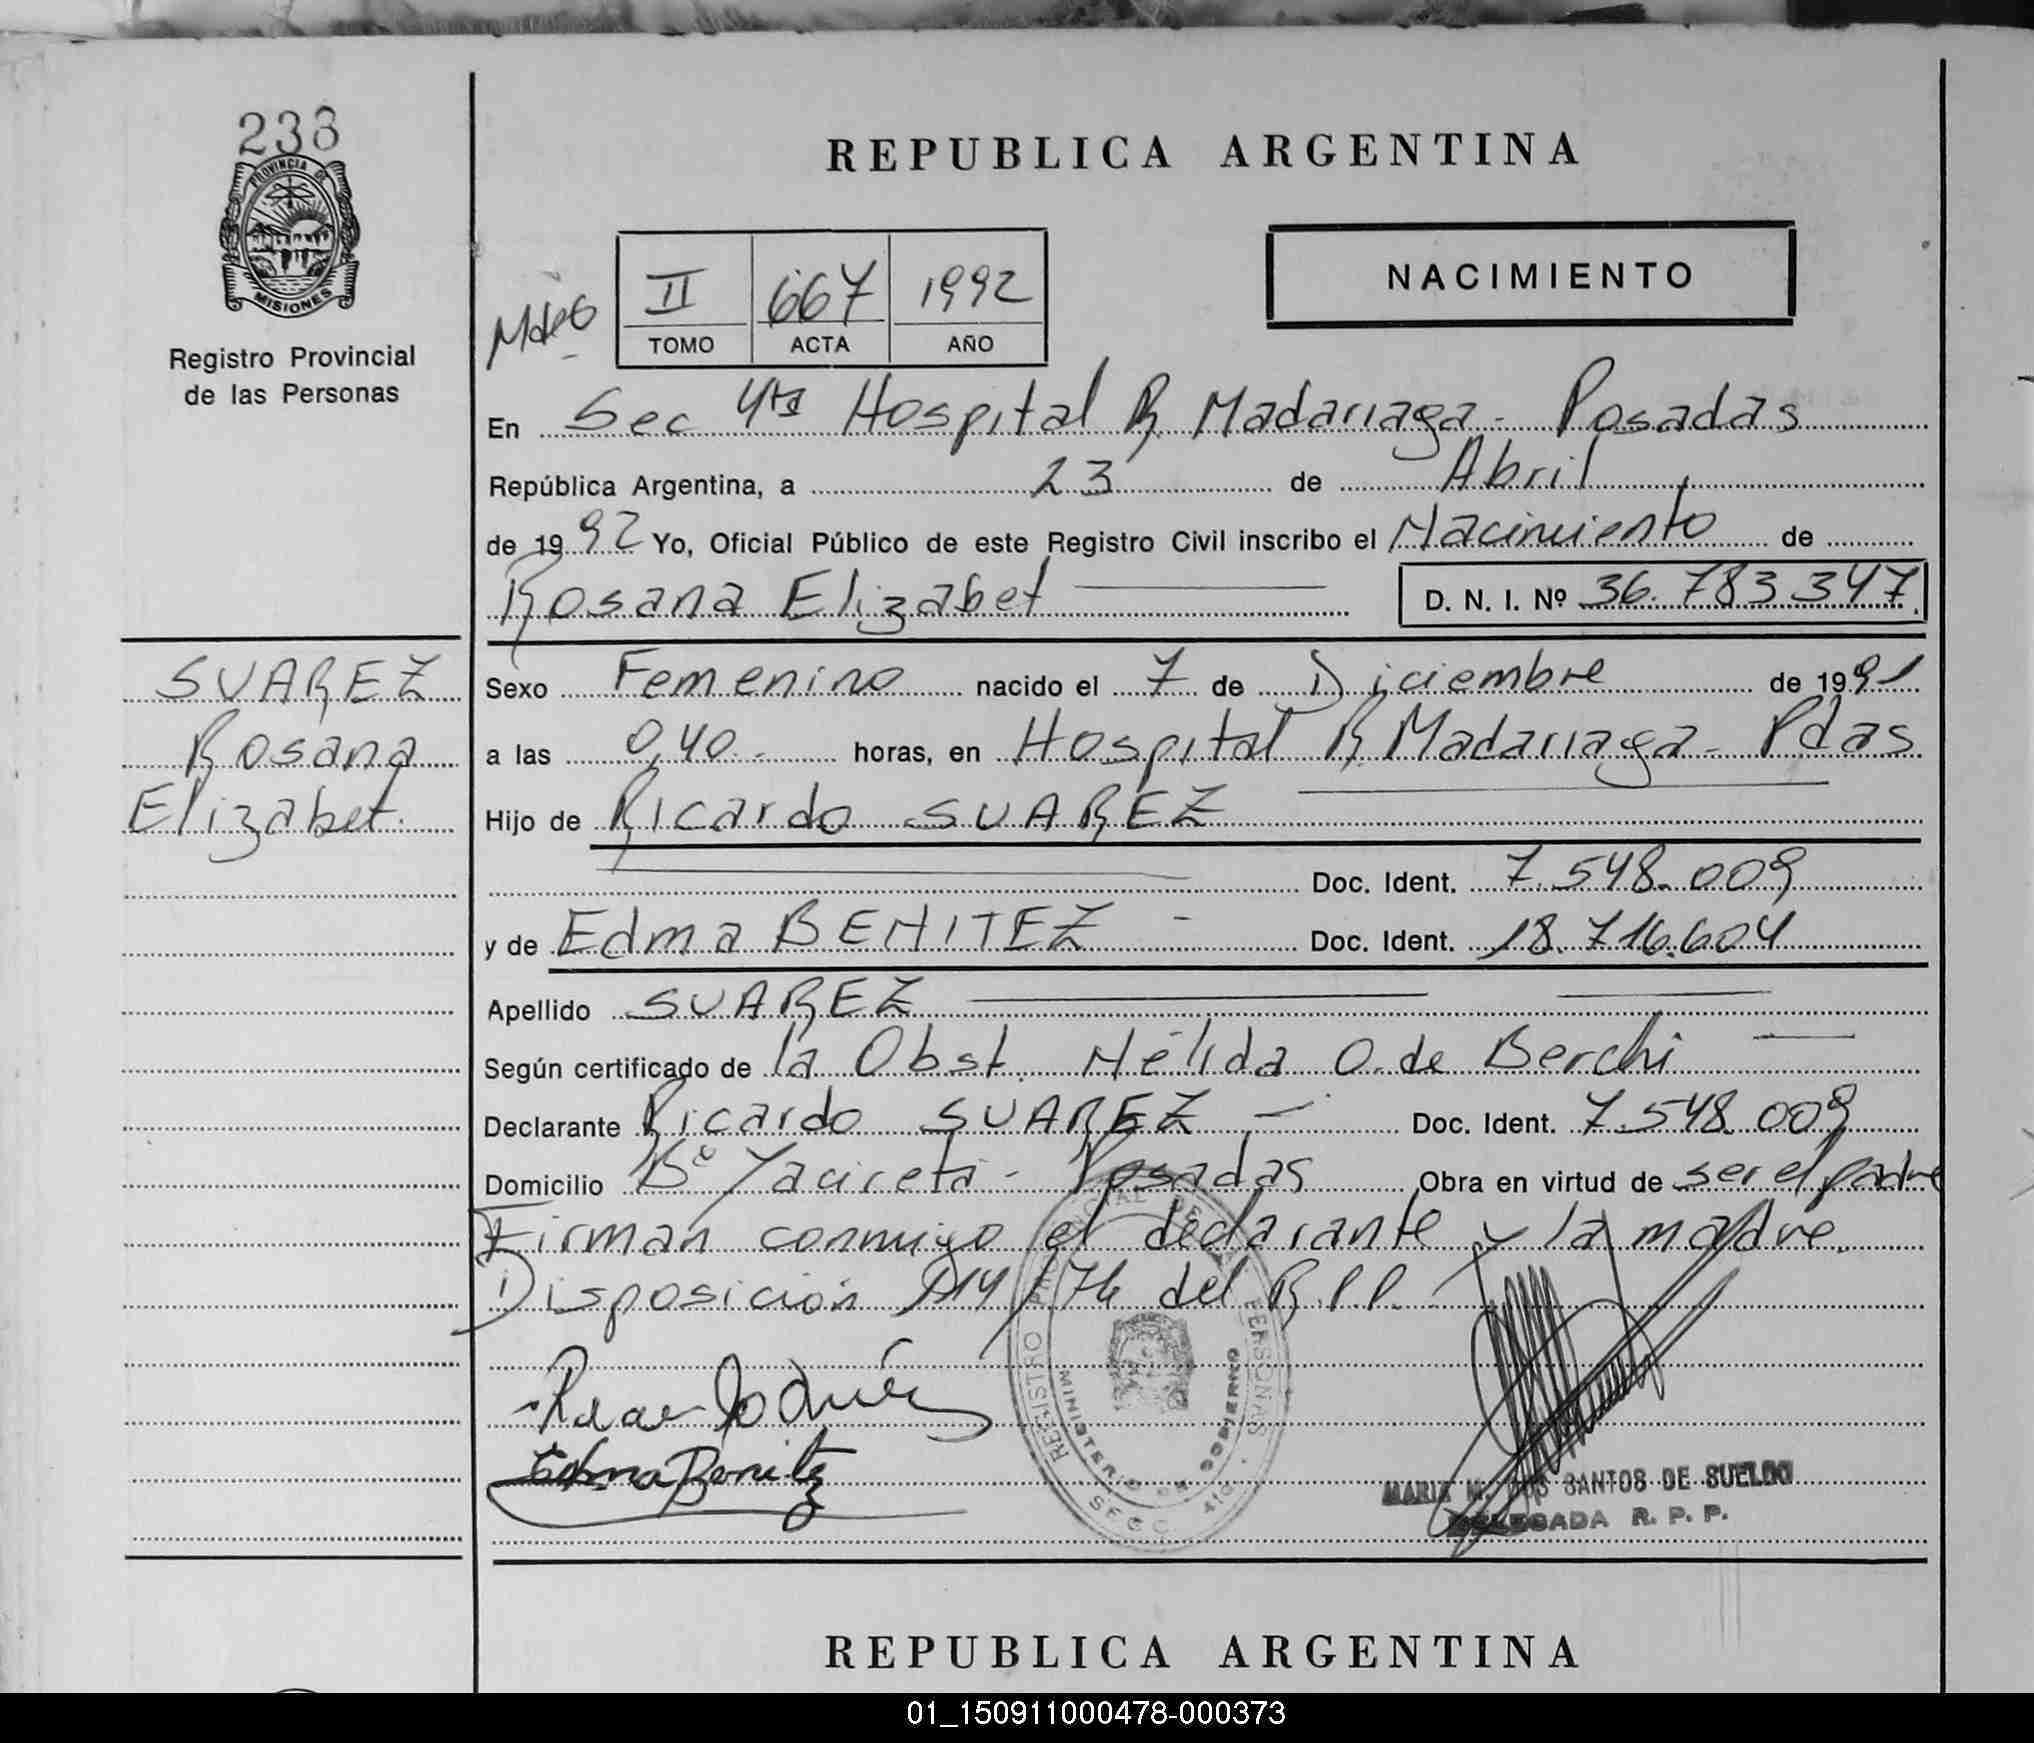 238
PROVINCIA DE
MISIONES
Registro Provincial
de las Personas
REPUBLICA ARGENTINA
II 667 1992
TOMO ACTA AÑO
NACIMIENTO
En Sec 4ta Hospital R. Madariaga - Posadas
República Argentina, a 23 de Abril
de 1992 Yo, Oficial Público de este Registro Civil inscribo el Nacimiento de
Rosana Elizabet D. N. I. Nº 36.783.347
SUAREZ
Rosana
Elizabet.
Sexo Femenino nacido el 7 de Diciembre de 1991
a las 0,40.- horas, en Hospital R. Madariaga - Pdas
Hijo de Ricardo SUAREZ
Doc. Ident. 7.548.009
y de Edma BENITEZ - Doc. Ident. 18.716.604
Apellido SUAREZ
Según certificado de la Obst. Nélida O. de Berchi
Declarante Ricardo SUAREZ - Doc. Ident. 7.548.009
Domicilio Bº Yacireta - Posadas Obra en virtud de ser el padre
Firman conmigo el declarante y la madre.
Disposición 114/76 del R.P.P.
Edma Benitez
REGISTRO PROVINCIAL DE LAS PERSONAS
MINISTERIO DE GOBIERNO
SECC. 4ta.
MARIA M. DOS SANTOS DE SUELDO
DELEGADA R. P. P.
REPUBLICA ARGENTINA
01_150911000478-000373